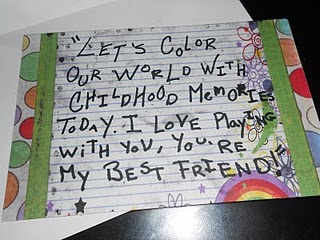 "LET'S COLOR
OUR WORLD WITH
CHILDHOOD MEMORIES
TODAY. I LOVE PLAYING
WITH YOU, YOU'RE
MY BEST FRIEND!"